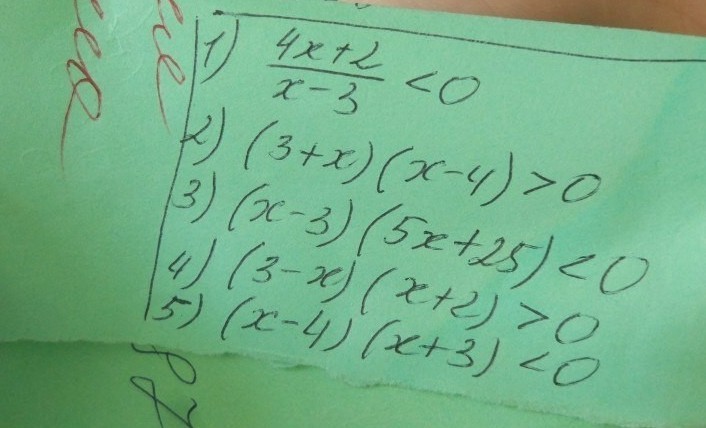 1) (4x+2)/(x-3) < 0
2) (3+x)(x-4) > 0
3) (x-3)(5x+25) < 0
4) (3-x)(x+2) > 0
5) (x-4)(x+3) < 0